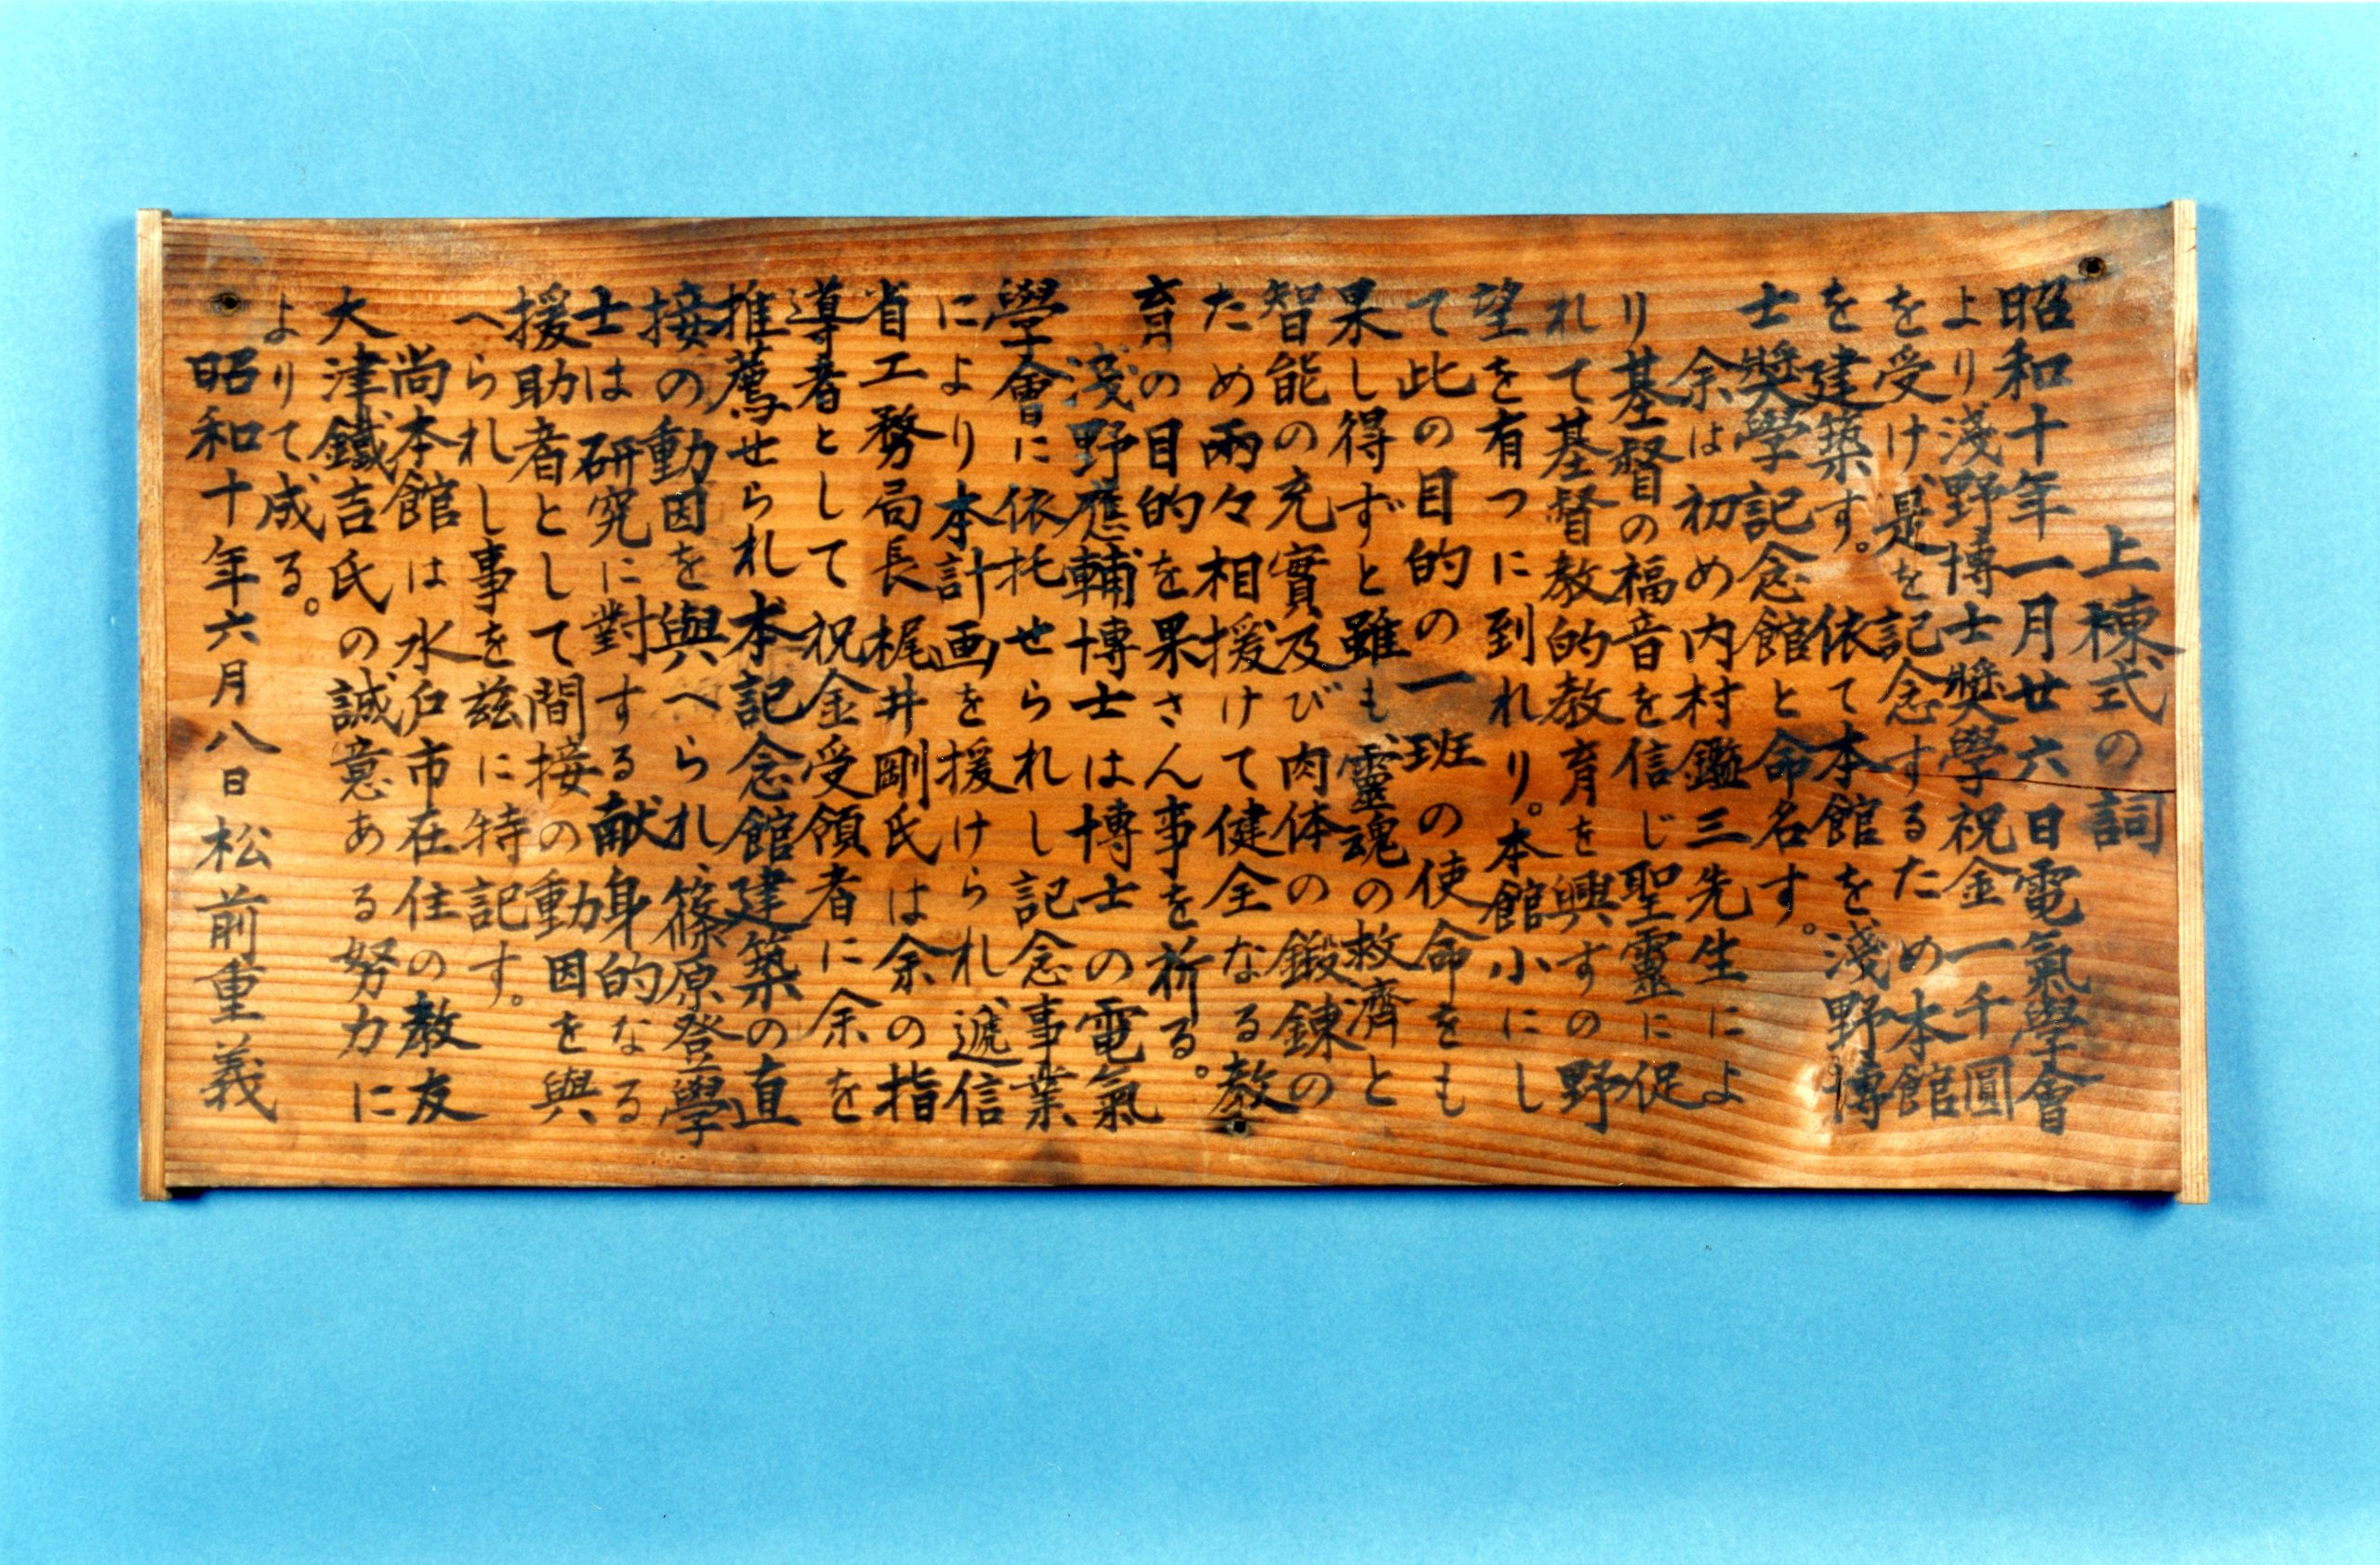 上棟式の詞
昭和十年一月廿六日電氣學會
より淺野博士奬學祝金一千圓
を受け、是を記念するため本館
を建築す。依て本館を淺野博
士奬學記念館と命名す。
余は初め内村鑑三先生によ
り基督の福音を信じ聖靈に促
れて基督教的教育を興すの野
望を有つに到れり。本館小にし
て此の目的の一班の使命をも
果し得ずと雖も、靈魂の救濟と
智能の充實及び肉体の鍛錬の
ため兩々相援けて健全なる教
育の目的を果さん事を祈る。
淺野應輔博士は博士の電氣
學會に依托せられし記念事業
により本計画を援けられ、遞信
省工務局長梶井剛氏は余の指
導者として祝金受領者に余を
推薦せられ本記念館建築の直
接の動因を與へられ、篠原登學
士は研究に對する献身的なる
援助者として間接の動因を與
へられし事を茲に特記す。
尚本館は水戸市在住の教友
大津鐵吉氏の誠意ある努力に
よりて成る。
昭和十年六月八日 松前重義